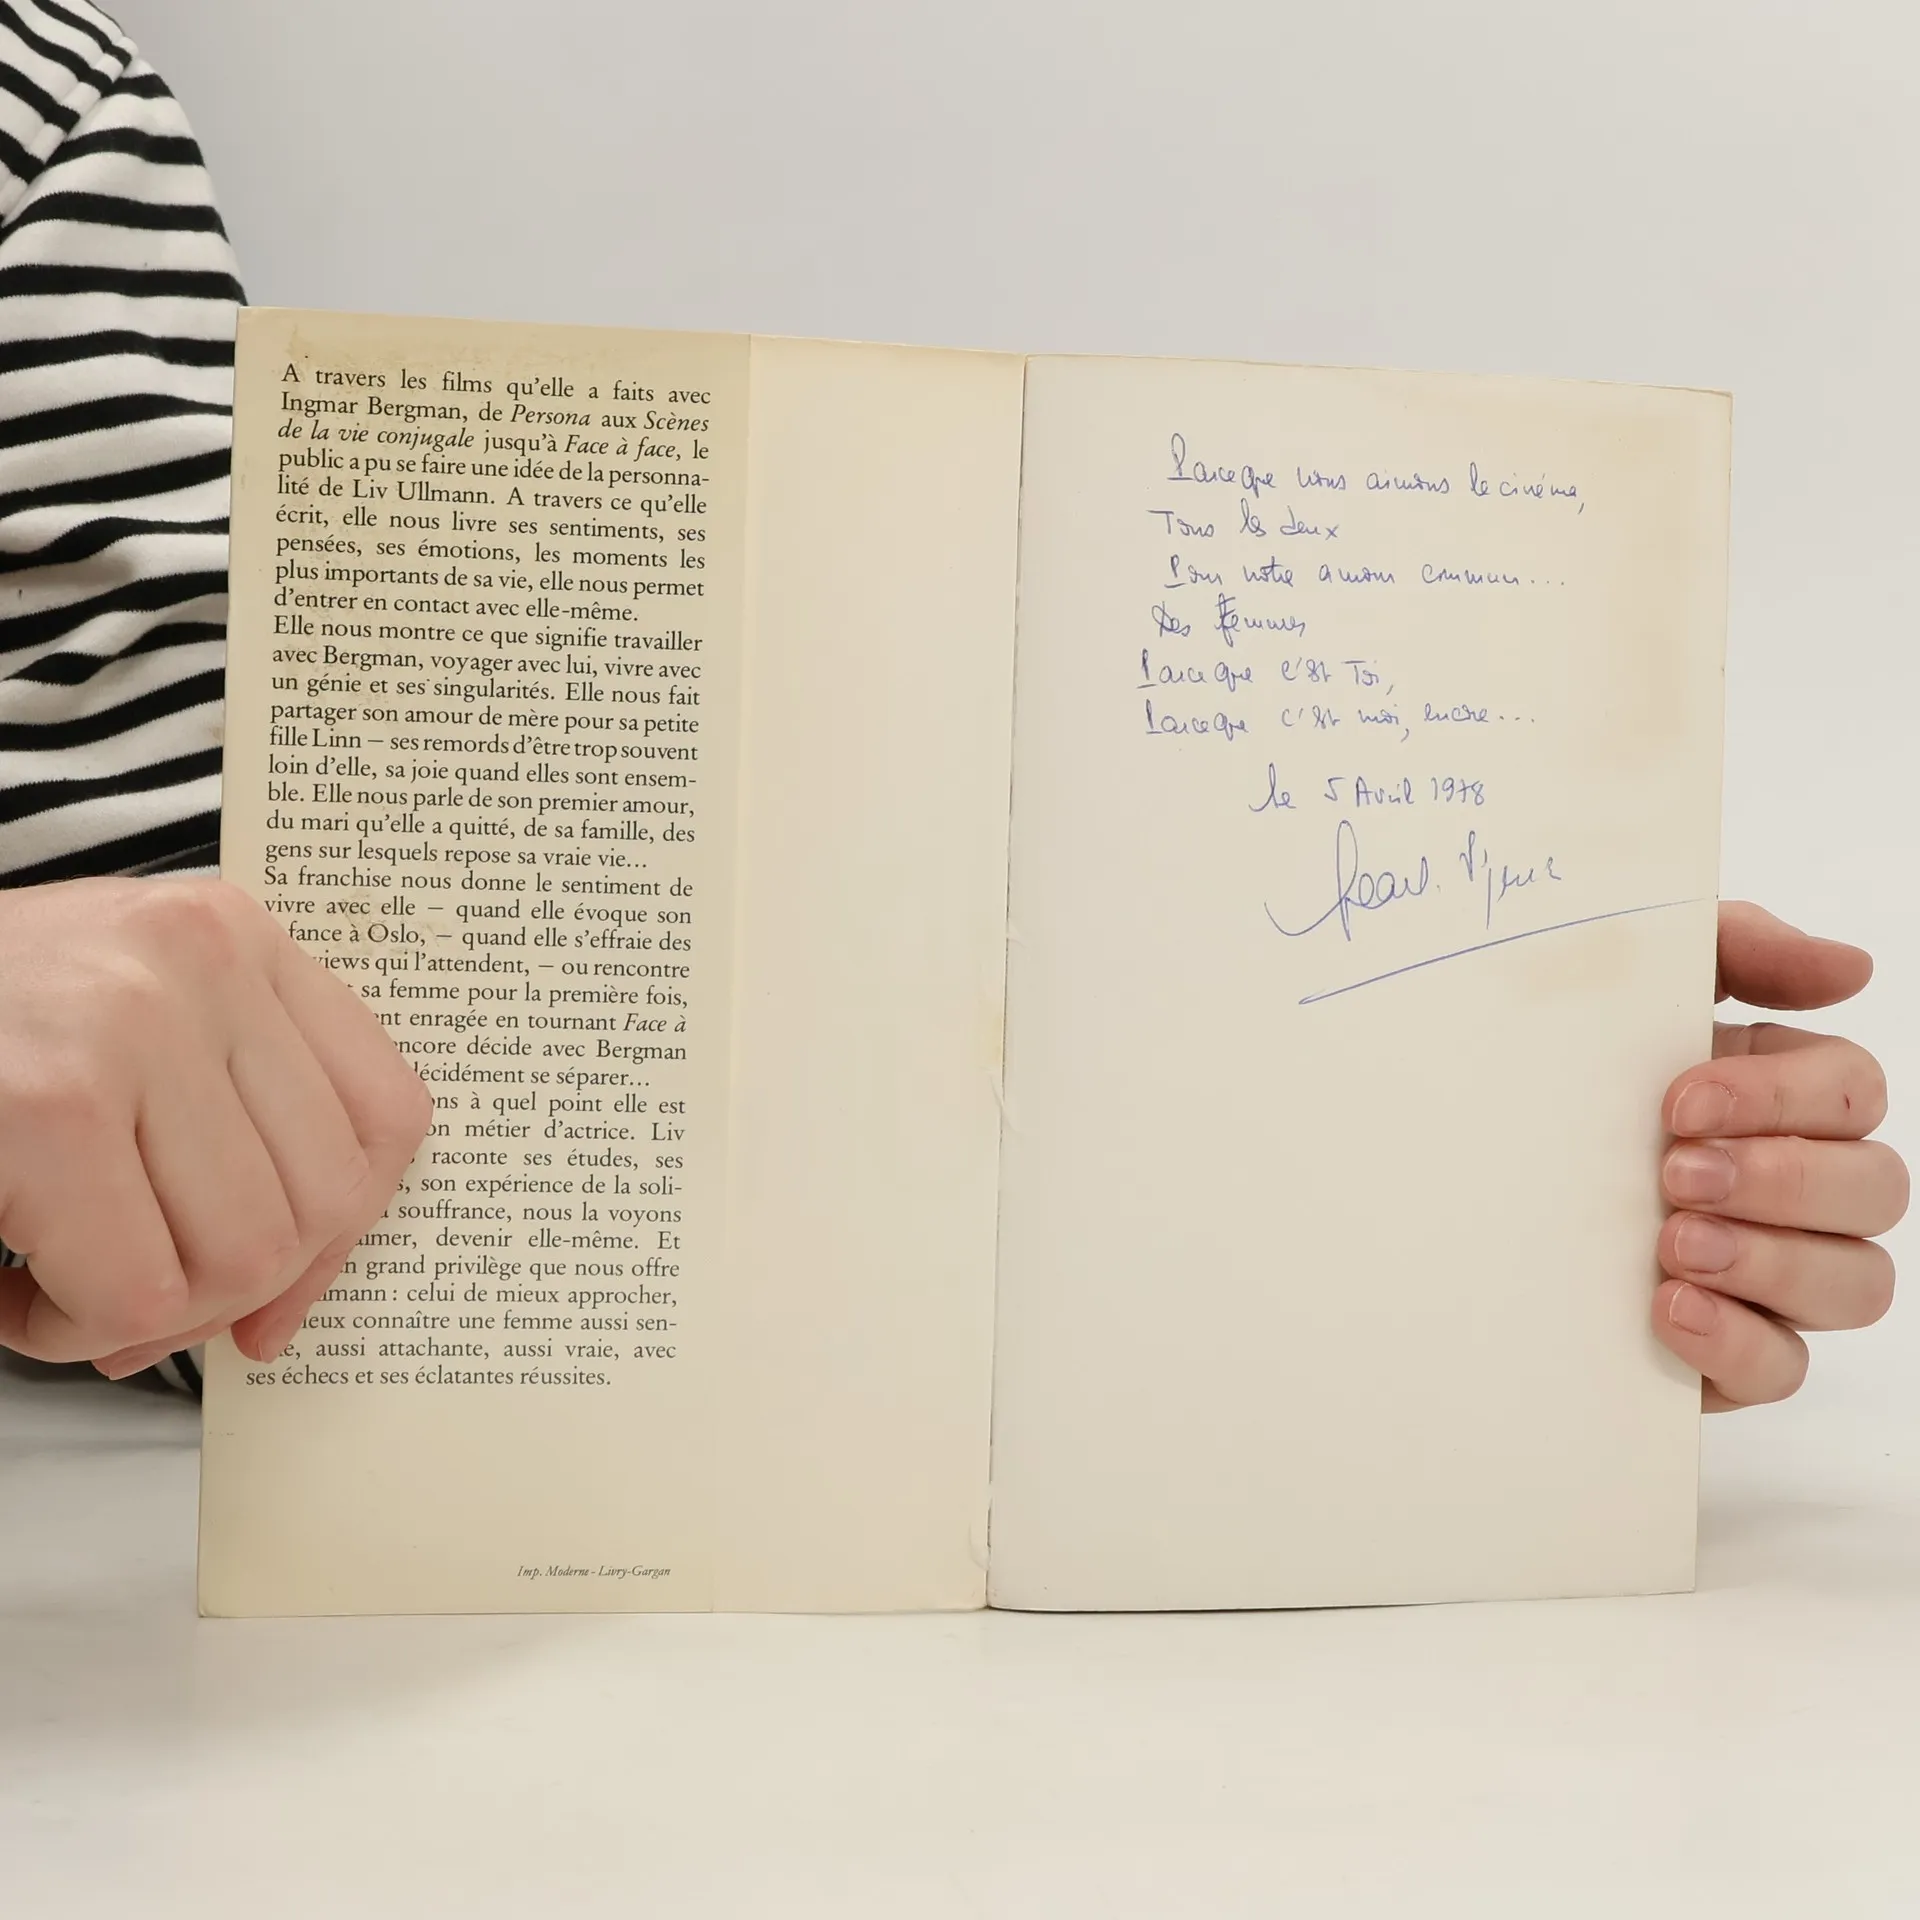 A travers les films qu'elle a faits avec
Ingmar Bergman, de Persona aux Scènes
de la vie conjugale jusqu'à Face à face, le
public a pu se faire une idée de la personna-
lité de Liv Ullmann. A travers ce qu'elle
écrit, elle nous livre ses sentiments, ses
pensées, ses émotions, les moments les
plus importants de sa vie, elle nous permet
d'entrer en contact avec elle-même.
Elle nous montre ce que signifie travailler
avec Bergman, voyager avec lui, vivre avec
un génie et ses singularités. Elle nous fait
partager son amour de mère pour sa petite
fille Linn – ses remords d'être trop souvent
loin d'elle, sa joie quand elles sont ensem-
ble. Elle nous parle de son premier amour,
du mari qu'elle a quitté, de sa famille, des
gens sur lesquels repose sa vraie vie...
Sa franchise nous donne le sentiment de
vivre avec elle – quand elle évoque son
fance à Oslo, – quand elle s'effraie des
views qui l'attendent, – ou rencontre
sa femme pour la première fois,
nt enragée en tournant Face à
encore décide avec Bergman
décidément se séparer...
ons à quel point elle est
on métier d'actrice. Liv
raconte ses études, ses
s, son expérience de la soli-
souffrance, nous la voyons
aimer, devenir elle-même. Et
n grand privilège que nous offre
lmann : celui de mieux approcher,
ieux connaître une femme aussi sen-
le, aussi attachante, aussi vraie, avec
ses échecs et ses éclatantes réussites.
Imp. Moderne - Livry-Gargan
Parce que nous aimons le cinéma,
Tous les deux
Pour notre amour commun...
Des Femmes
Parce que c'est Toi,
Parce que c'est moi, encore...
le 5 Avril 1978
Jean